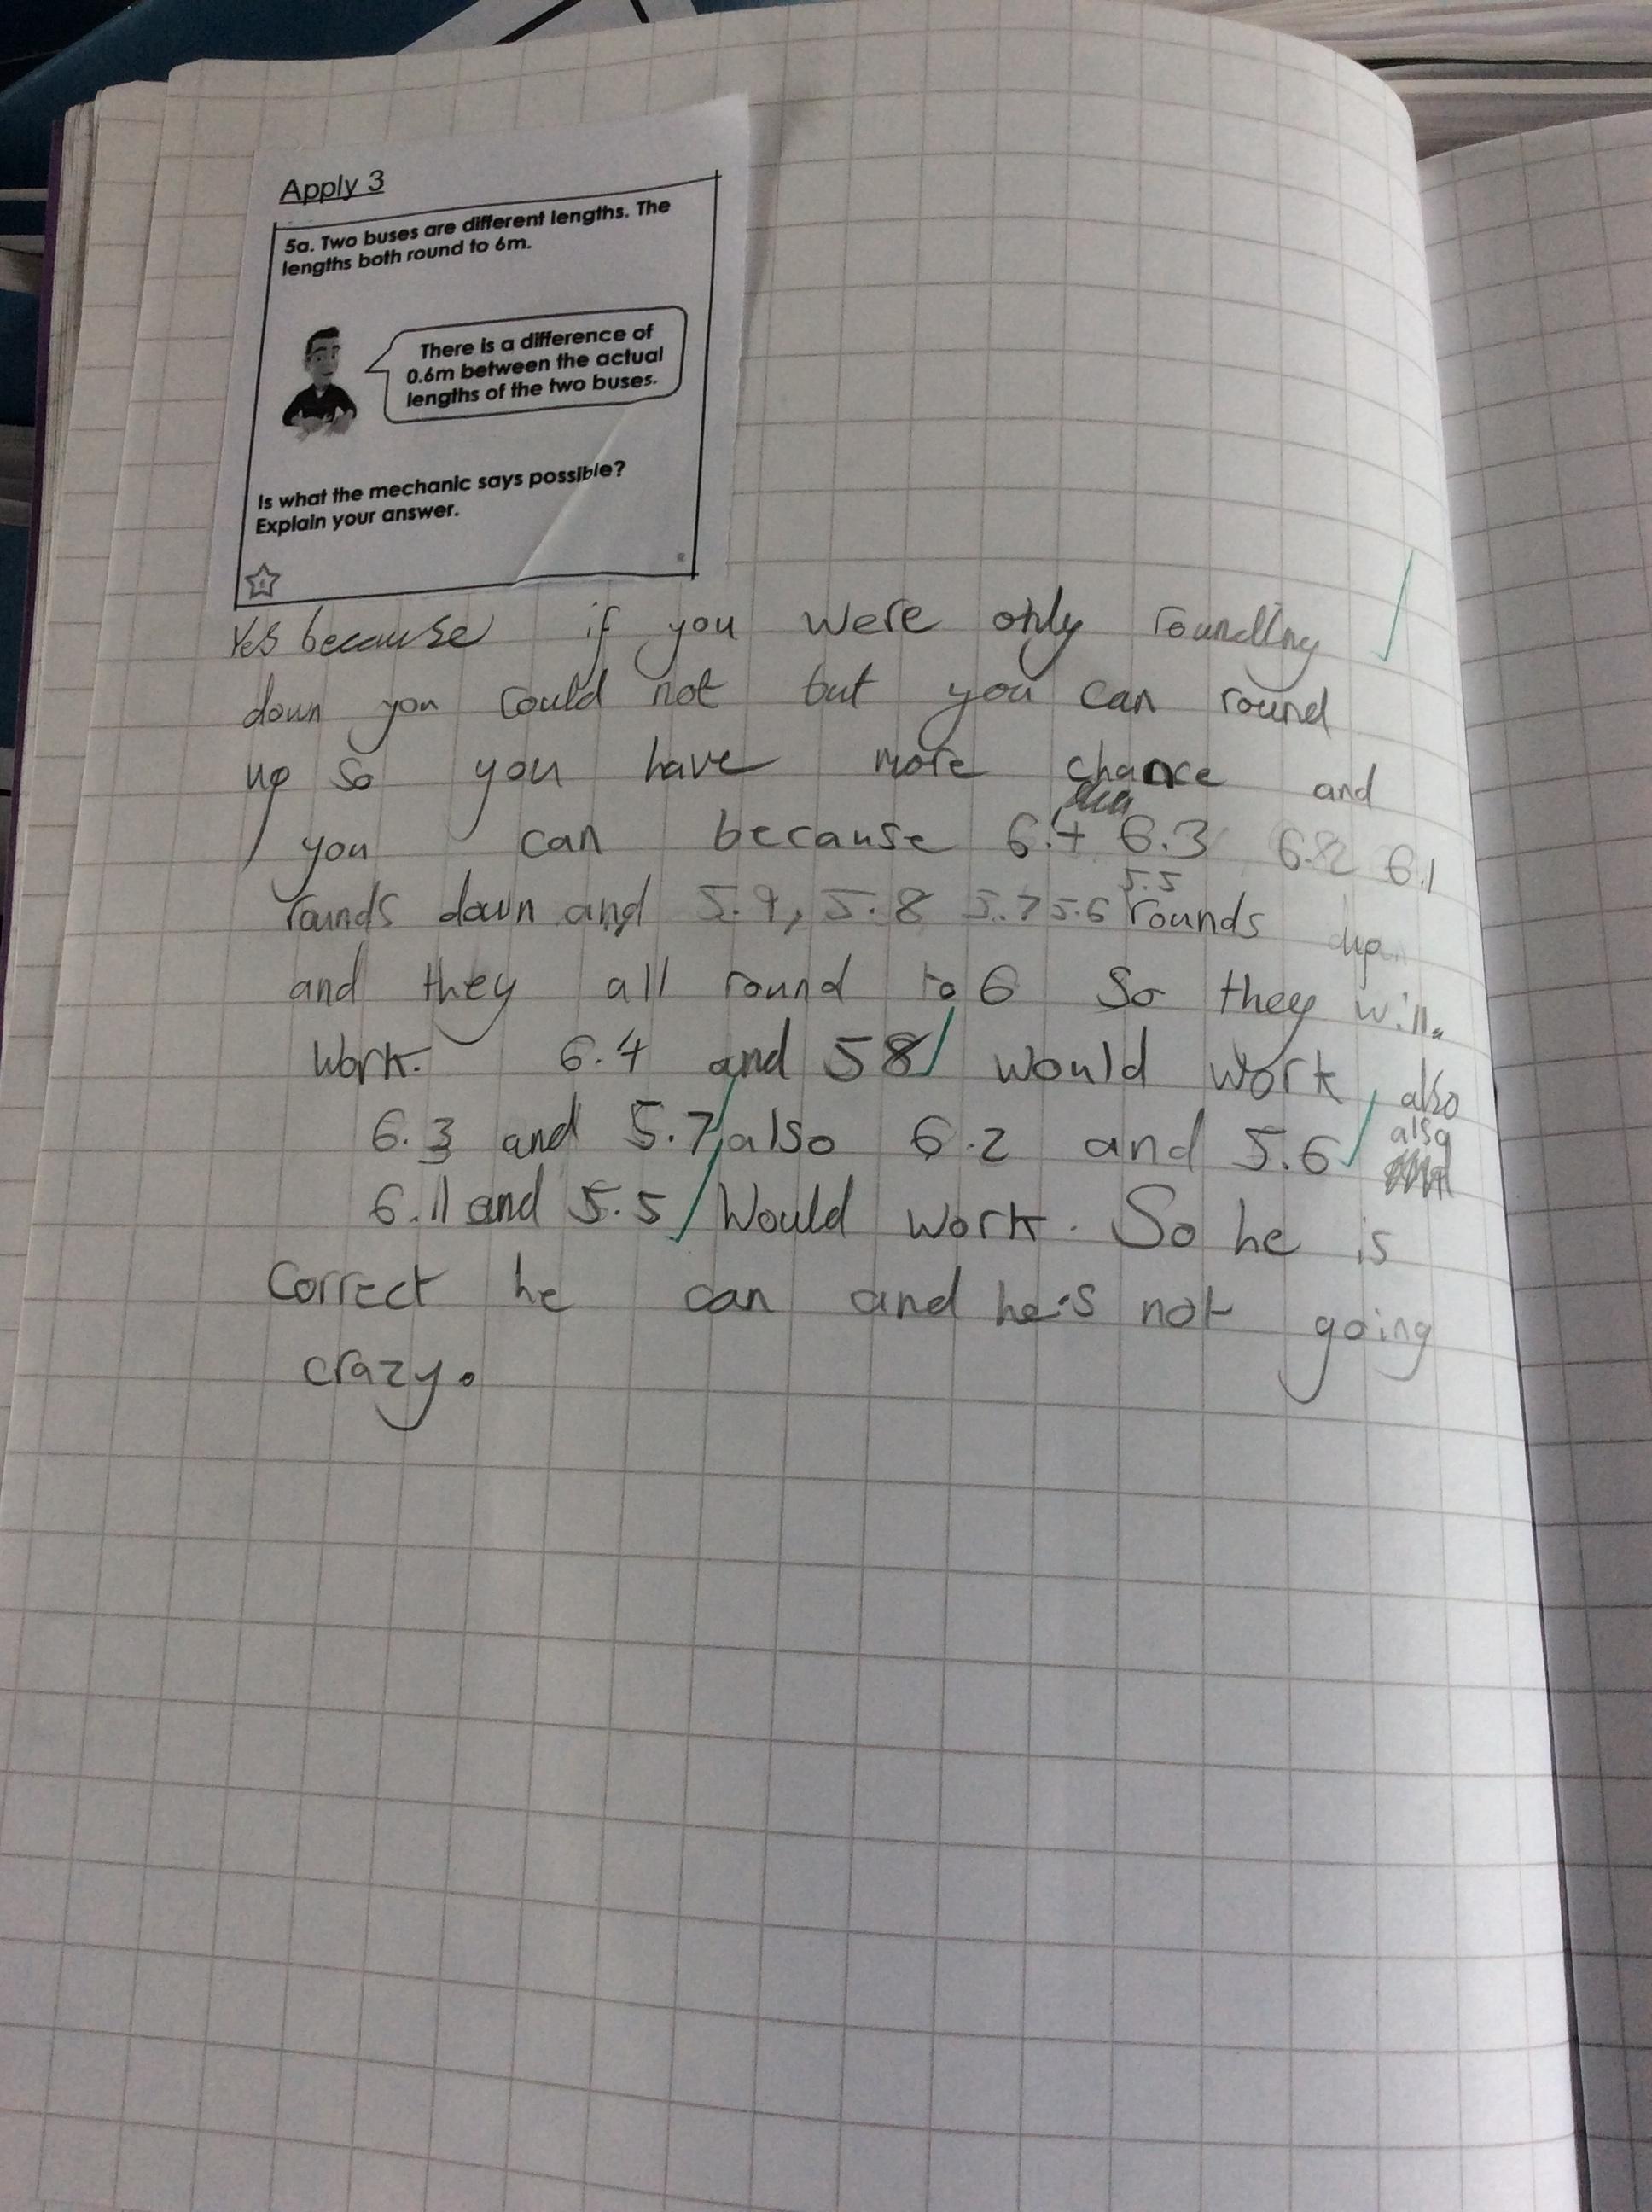 Apply 3
5a. Two buses are different lengths. The
lengths both round to 6m.
There is a difference of
0.6m between the actual
lengths of the two buses.
Is what the mechanic says possible?
Explain your answer.
Yes because if you were only rounding
down you could not but you can round
up so you have more chance and
you can because 6.4 6.3 6.2 6.1
5.5
rounds down and 5.9, 5.8 5.7 5.6 rounds up
and they all round to 6 So they will
work. 6.4 and 58 would work, also
6.3 and 5.7, also 6.2 and 5.6 also
6.1 and 5.5 Would work. So he is
Correct he can and he's not going
crazy.